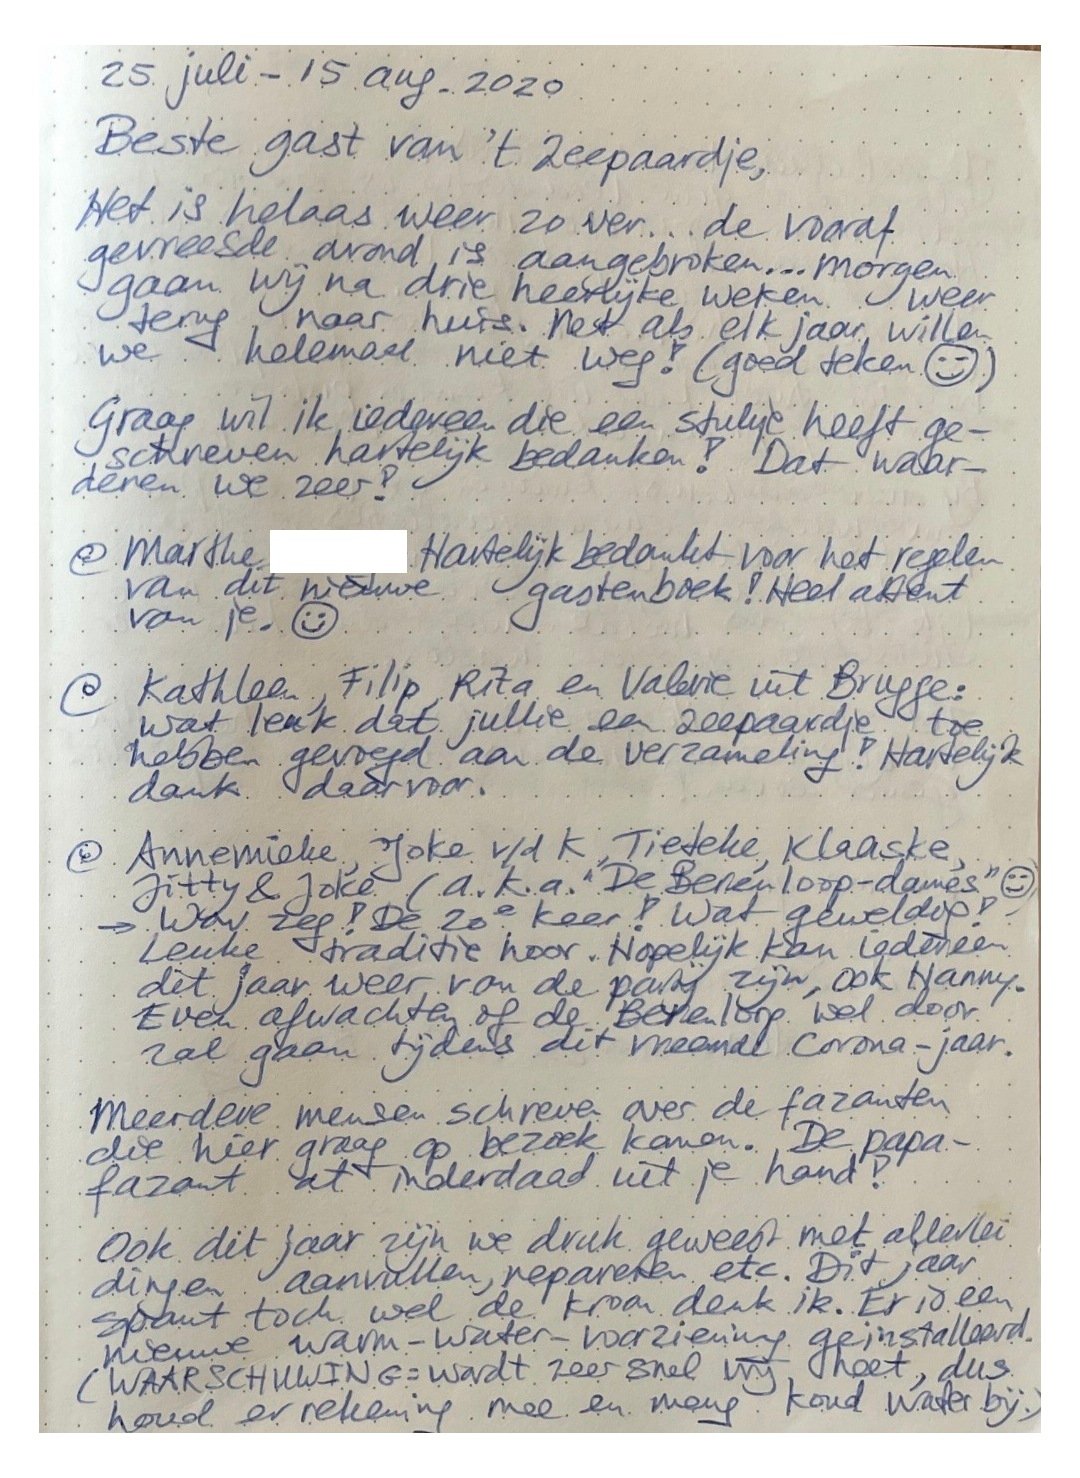 25 juli - 15 aug. 2020
Beste gast van 't Zeepaardje,
Het is helaas weer zo ver... de vooraf
gevreesde avond is aangebroken... morgen
gaan wij na drie heerlijke weken weer
terug naar huis. Net als elk jaar willen
we helemaal niet weg! (goed teken ☺)
Graag wil ik iedereen die een stukje heeft ge-
schreven hartelijk bedanken! Dat waar-
deren we zeer!
@ Marthe Hartelijk bedankt voor het regelen
van dit nieuwe gastenboek! Heel attent
van je. ☺
@ Kathleen, Filip, Rita en Valerie uit Brugge:
wat leuk dat jullie een zeepaardje toe
hebben gevoegd aan de verzameling! Hartelijk
dank daarvoor.
@ Annemieke, Joke v/d K, Tieteke, Klaaske,
Jitty & Joke (a.k.a. "De Berenloop-dames" ☺)
→ Wow zeg! De 20e keer! Wat geweldig!
Leuke traditie hoor. Hopelijk kan iedereen
dit jaar weer van de partij zijn, ook Nanny.
Even afwachten of de Berenloop wel door
zal gaan tijdens dit vreemde Corona-jaar.
Meerdere mensen schreven over de fazanten
die hier graag op bezoek komen. De papa-
fazant at inderdaad uit je hand!
Ook dit jaar zijn we druk geweest met allerlei
dingen aanvullen, repareren etc. Dit jaar
spant toch wel de kroon denk ik. Er is een
nieuwe warm-water-voorziening geinstalleerd.
(WAARSCHUWING = wordt zeer snel vrij heet, dus
houd er rekening mee en meng koud water bij.)